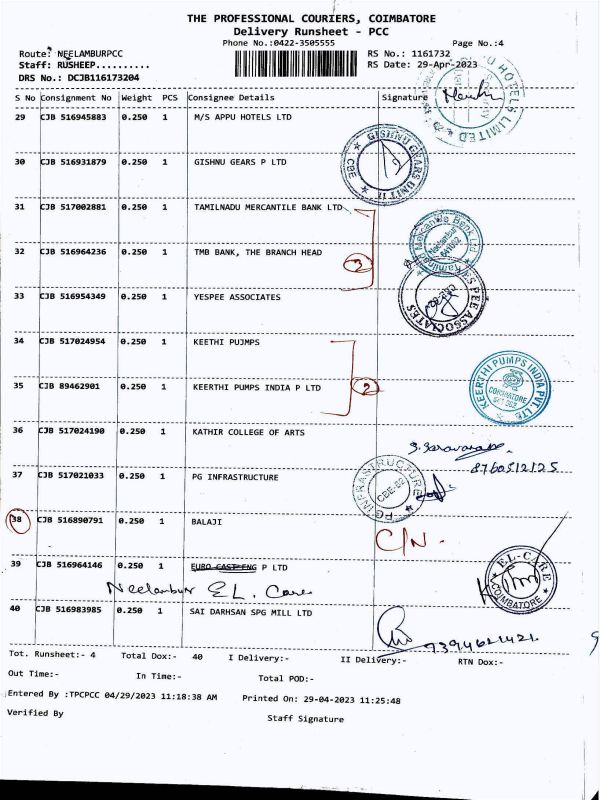 THE PROFESSIONAL COURIERS, COIMBATORE
Delivery Runsheet - PCC
Phone No.:0422-3505555
Page No.:4
Route: NEELAMBURPCC
RS No.: 1161732
Staff: RUSHEEP..........
RS Date: 29-Apr-2023
DRS No.: DCJB116173204
S No Consignment No Weight PCS Consignee Details Signature
HOTELS LIMITED
29 CJB 516945883 0.250 1 M/S APPU HOTELS LTD
GISHNU GEARS UNIT II CBE
30 CJB 516931879 0.250 1 GISHNU GEARS P LTD
31 CJB 517002881 0.250 1 TAMILNADU MERCANTILE BANK LTD
Tamilnad Mercantile Bank Ltd Neelambur 641062
32 CJB 516964236 0.250 1 TMB BANK, THE BRANCH HEAD
3
33 CJB 516954349 0.250 1 YESPEE ASSOCIATES
PEE ASSOCIATES
34 CJB 517024954 0.250 1 KEETHI PUJMPS
35 CJB 89462901 0.250 1 KEERTHI PUMPS INDIA P LTD
2
KEERTHI PUMPS INDIA PVT. LTD. COIMBATORE
36 CJB 517024190 0.250 1 KATHIR COLLEGE OF ARTS
8760512125
37 CJB 517021033 0.250 1 PG INFRASTRUCTURE
PG INFRASTRUCTURE
38 CJB 516890791 0.250 1 BALAJI
C/N.
39 CJB 516964146 0.250 1 EURO CASTLENG P LTD
Neelambur EL. Care
EL-CARE COIMBATORE
40 CJB 516983985 0.250 1 SAI DARHSAN SPG MILL LTD
Tot. Runsheet:- 4 Total Dox:- 40 I Delivery:- II Delivery:- RTN Dox:-
Out Time:- In Time:- Total POD:-
Entered By :TPCPCC 04/29/2023 11:18:38 AM Printed On: 29-04-2023 11:25:48
Verified By
Staff Signature